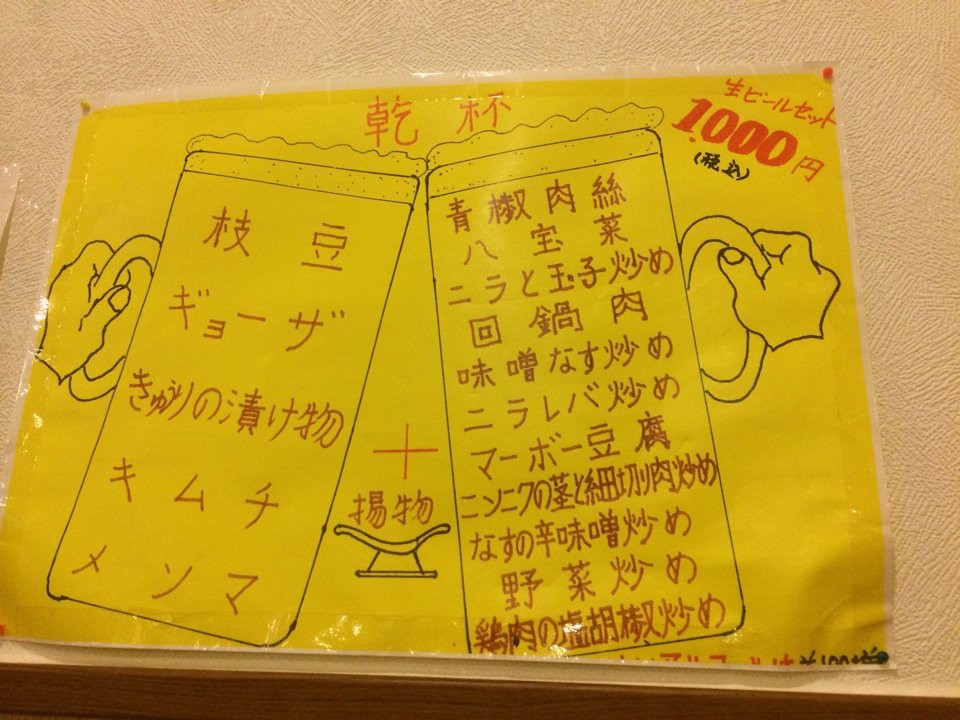 乾杯
生ビールセット
1000円
(税込)
枝豆
ギョーザ
きゅうりの漬け物
キムチ
メンマ
十
揚物
青椒肉絲
八宝菜
ニラと玉子炒め
回鍋肉
味噌なす炒め
ニラレバ炒め
マーボー豆腐
ニンニクの茎と細切り肉炒め
なすの辛味噌炒め
野菜炒め
鶏肉の塩胡椒炒め